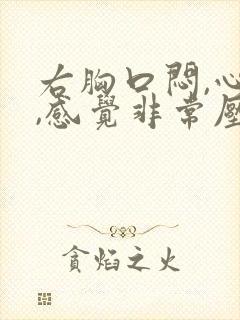 右胸口悶,心
,感覺非常壓
貪焰之火